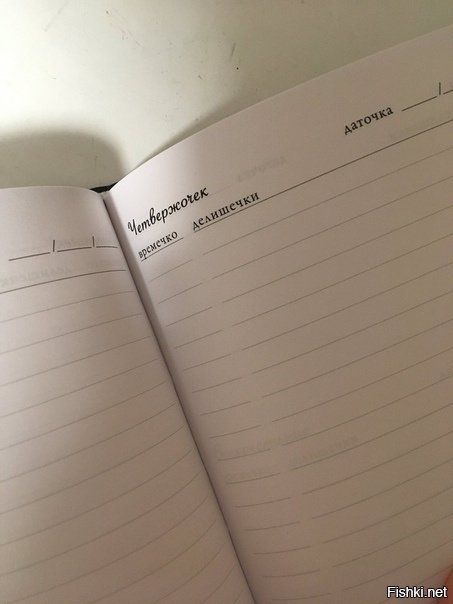 Четвержочек
даточка ___/
времечко делишечки
___/___/___
Fishki.net